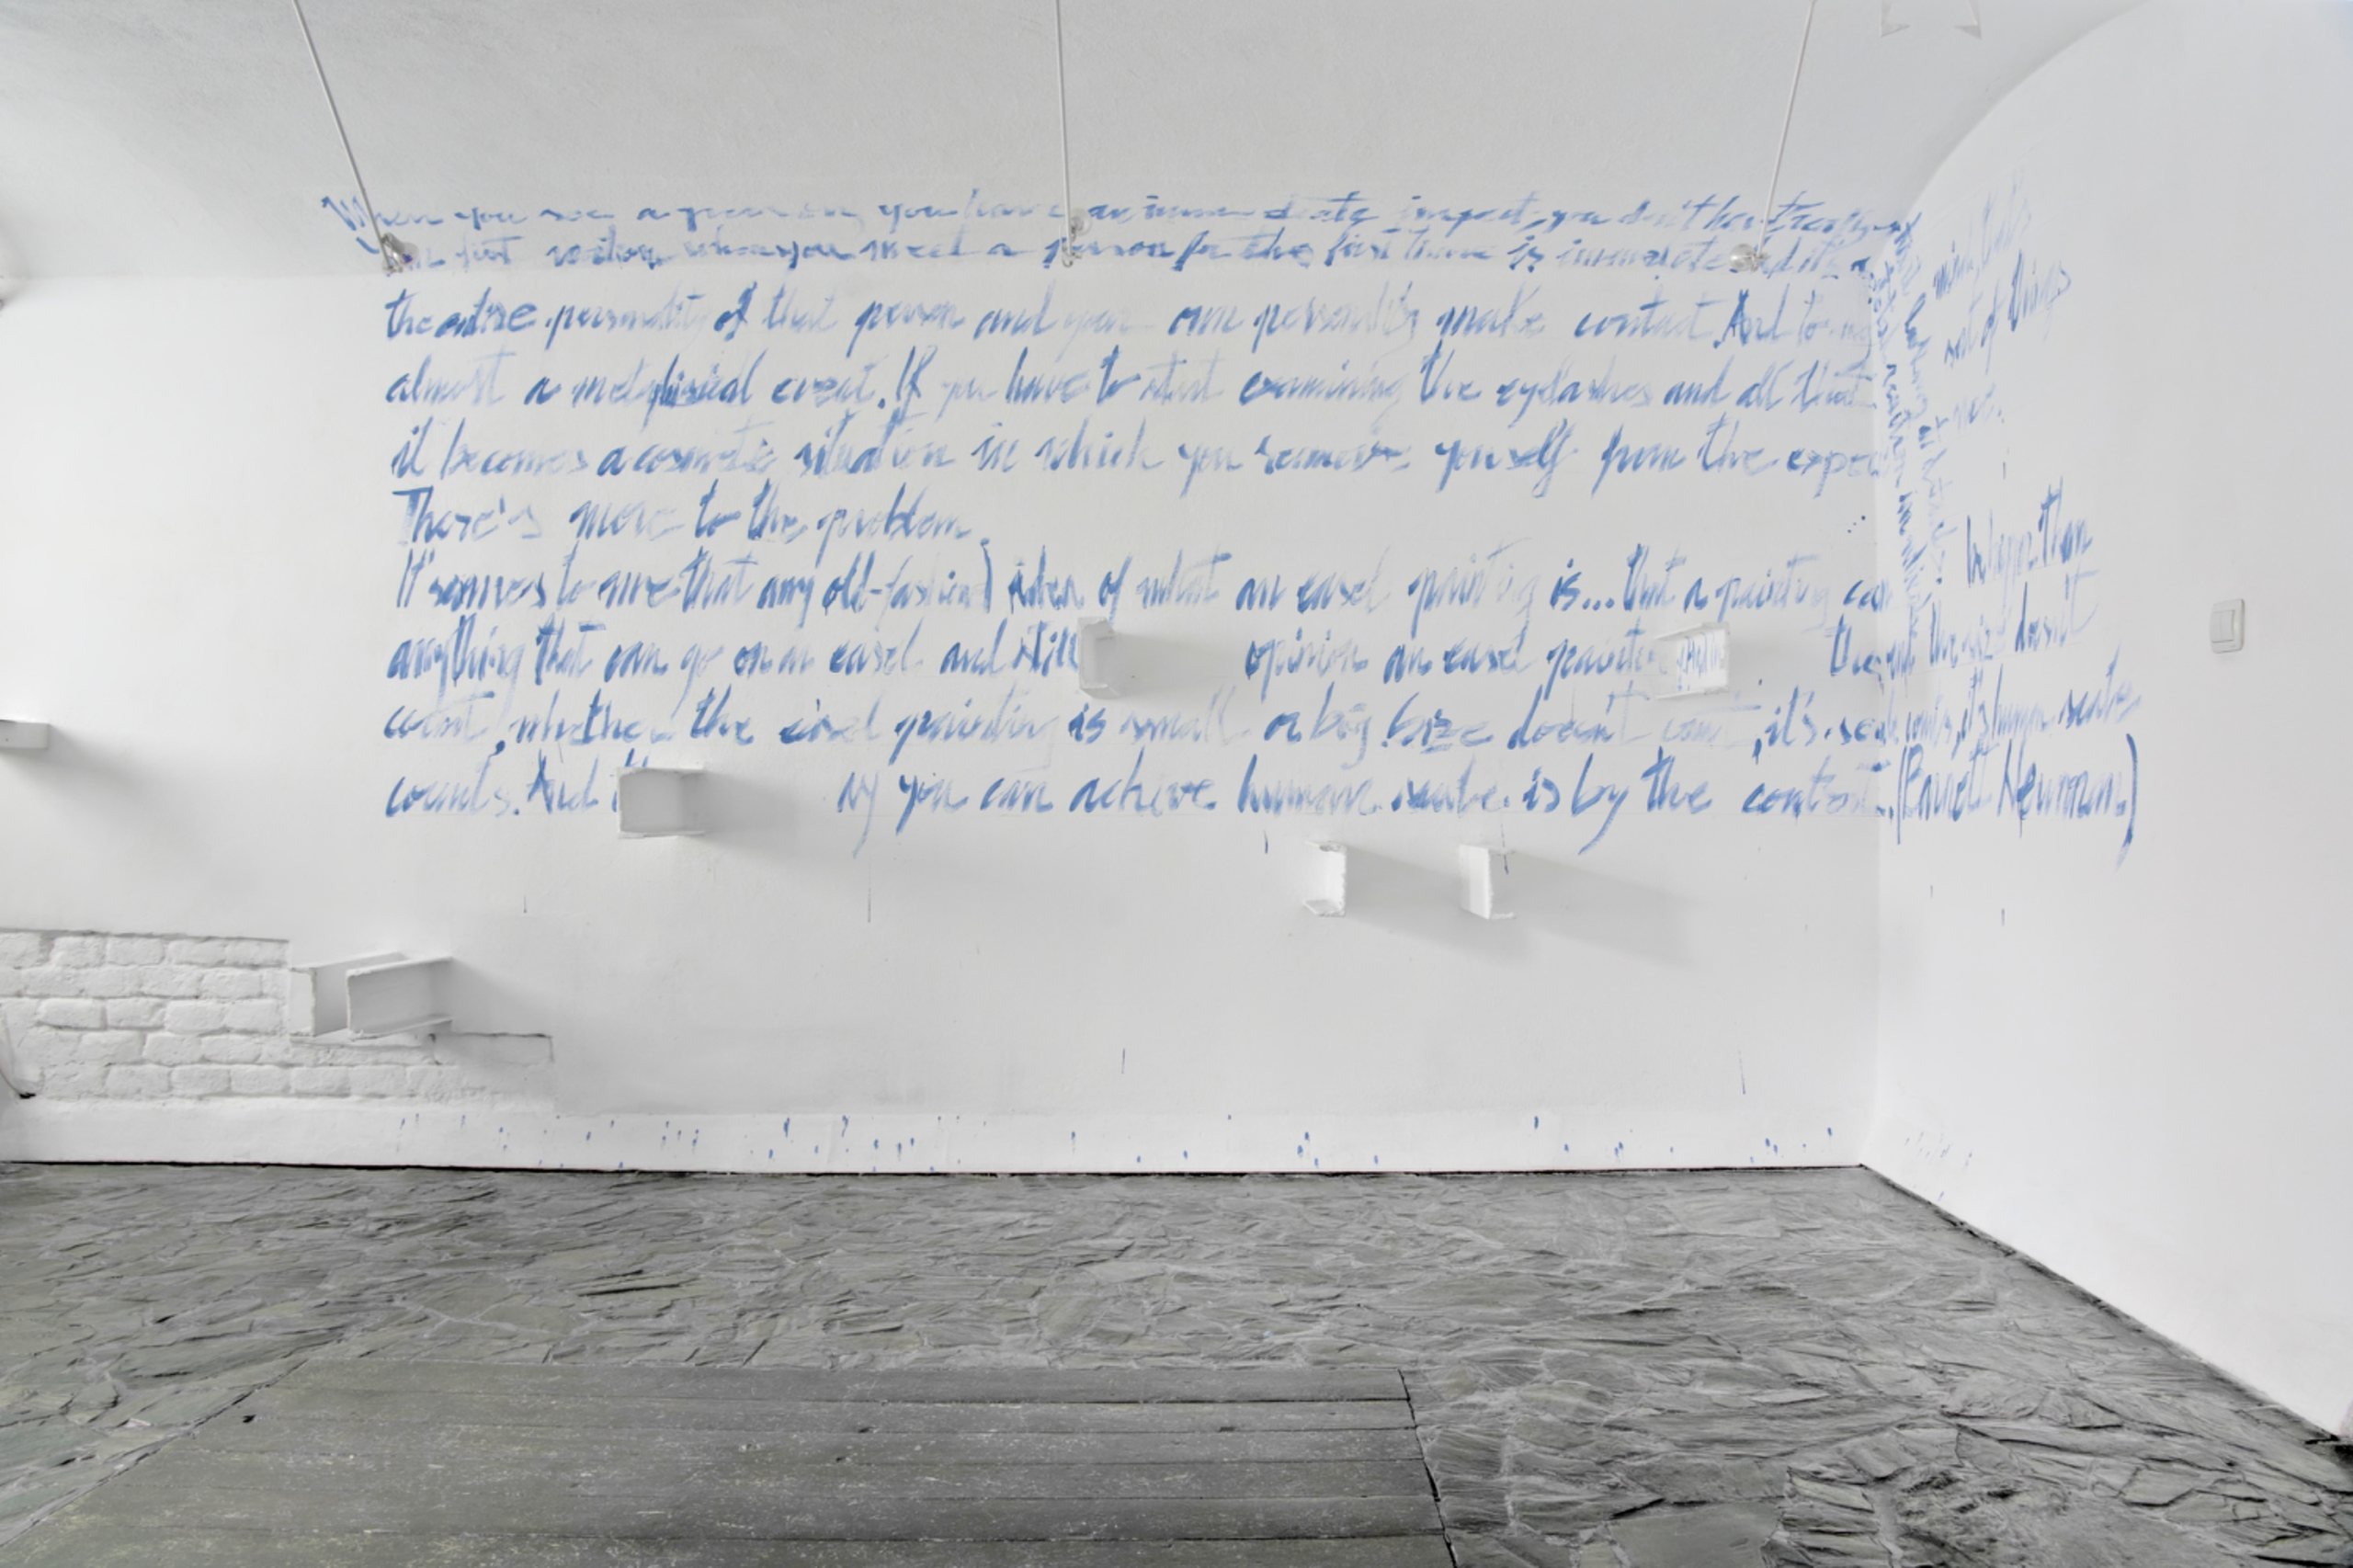 When you see a person, you have an immediate impact, you don't have to really
first when you meet a person for the first time is immediate. And it's a
the entire personality of that person and your own personality make contact. And to
almost a metaphysical event. If you have to start examining the eyelashes and all that sort of things
it becomes a cosmetic situation in which you remove yourself from the
There's more to the problem.
It seems to me that any old-fashion) idea of what an easel painting is...that a painting can be larger than
anything that can go on an easel and still opinion an easel painting the size doesn't
count, whether the easel painting is small or big. Size doesn't count, it's scale counts, it's human scale
counts. And you can achieve human scale is by the content. (Barnett Newman)